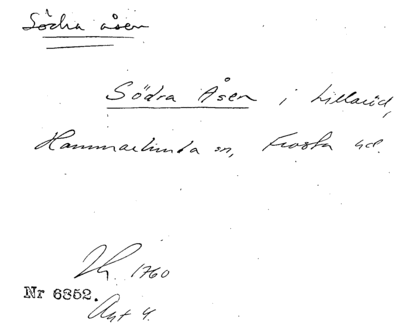 Södra åsen
Södra Åsen i Lillaröd,
Hammarlunda sn, Frosta hd.
1760
Nr 6852.
Akt 4.